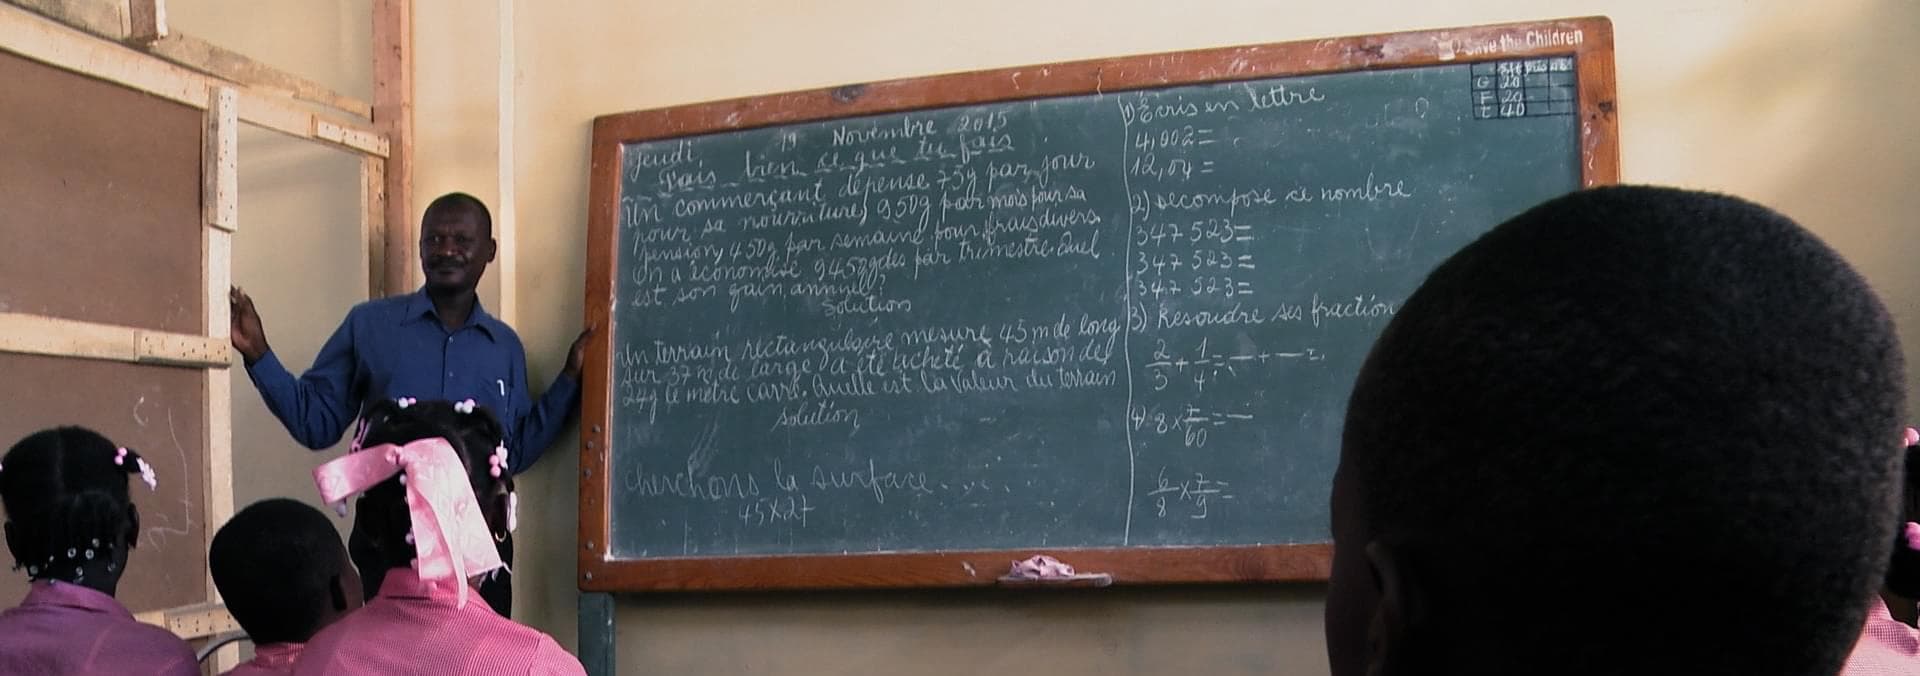 Save the Children
G 20
F 20
t 40
jeudi, 19 Novembre 2015
Fais bien ce que tu fais.
Un commerçant dépense 75g par jour
pour sa nourriture, 950g par mois pour sa
pension, 450g par semaine pour frais divers
on a économisé 9450gdes par trimestre. Quel
est son gain annuel?
Solution
Un terrain rectangulaire mesure 45 m de long
sur 37 m de large a été acheté à raison de
24g le mètre carré. Quelle est la valeur du terrain
solution
cherchons la surface.....
45x27
1) Écris en lettre
4,002=
12,04=
2) Decompose ce nombre
347 523=
347 523=
347 523=
3) Resoudre ses fraction
2/3 + 1/4 = — + — =
4) 8 x 7/60 = —
6/8 x 7/9 =